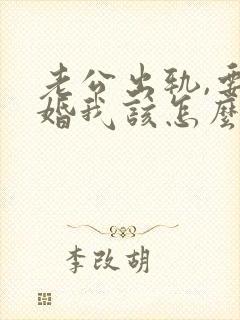 老公出轨,要
婚我该怎麼
李改胡